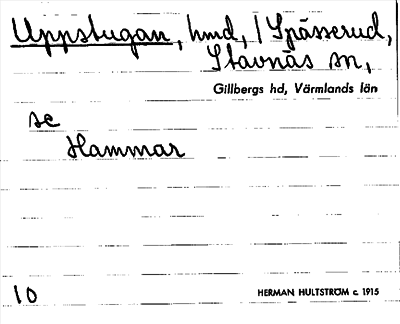 Uppstugan, hmd, / Spässerud,
Stavnäs sn,
Gillbergs hd, Värmlands län
se
Hammar
10
HERMAN HULTSTRÖM c. 1915